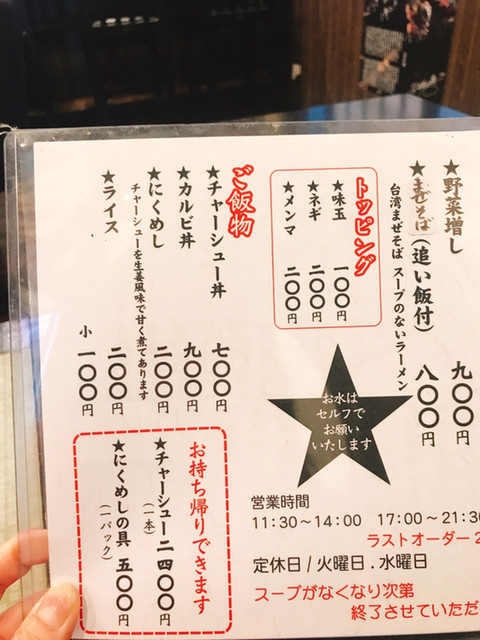 ★野菜増し 九〇〇円
★まぜそば(追い飯付) 八〇〇円
台湾まぜそば スープのないラーメン
トッピング
★味玉 一〇〇円
★ネギ 二〇〇円
★メンマ 二〇〇円
ご飯物
★チャーシュー丼 七〇〇円
★カルビ丼 九〇〇円
★にくめし 二〇〇円
チャーシューを生姜風味で甘く煮てあります
★ライス 二〇〇円
小 一〇〇円
お水は
セルフで
お願い
いたします
お持ち帰りできます
★チャーシュー 二四〇〇円
(一本)
★にくめしの具 五〇〇円
(一パック)
営業時間
11:30～14:00 17:00～21:30
ラストオーダー2
定休日/火曜日.水曜日
スープがなくなり次第
終了させていただ